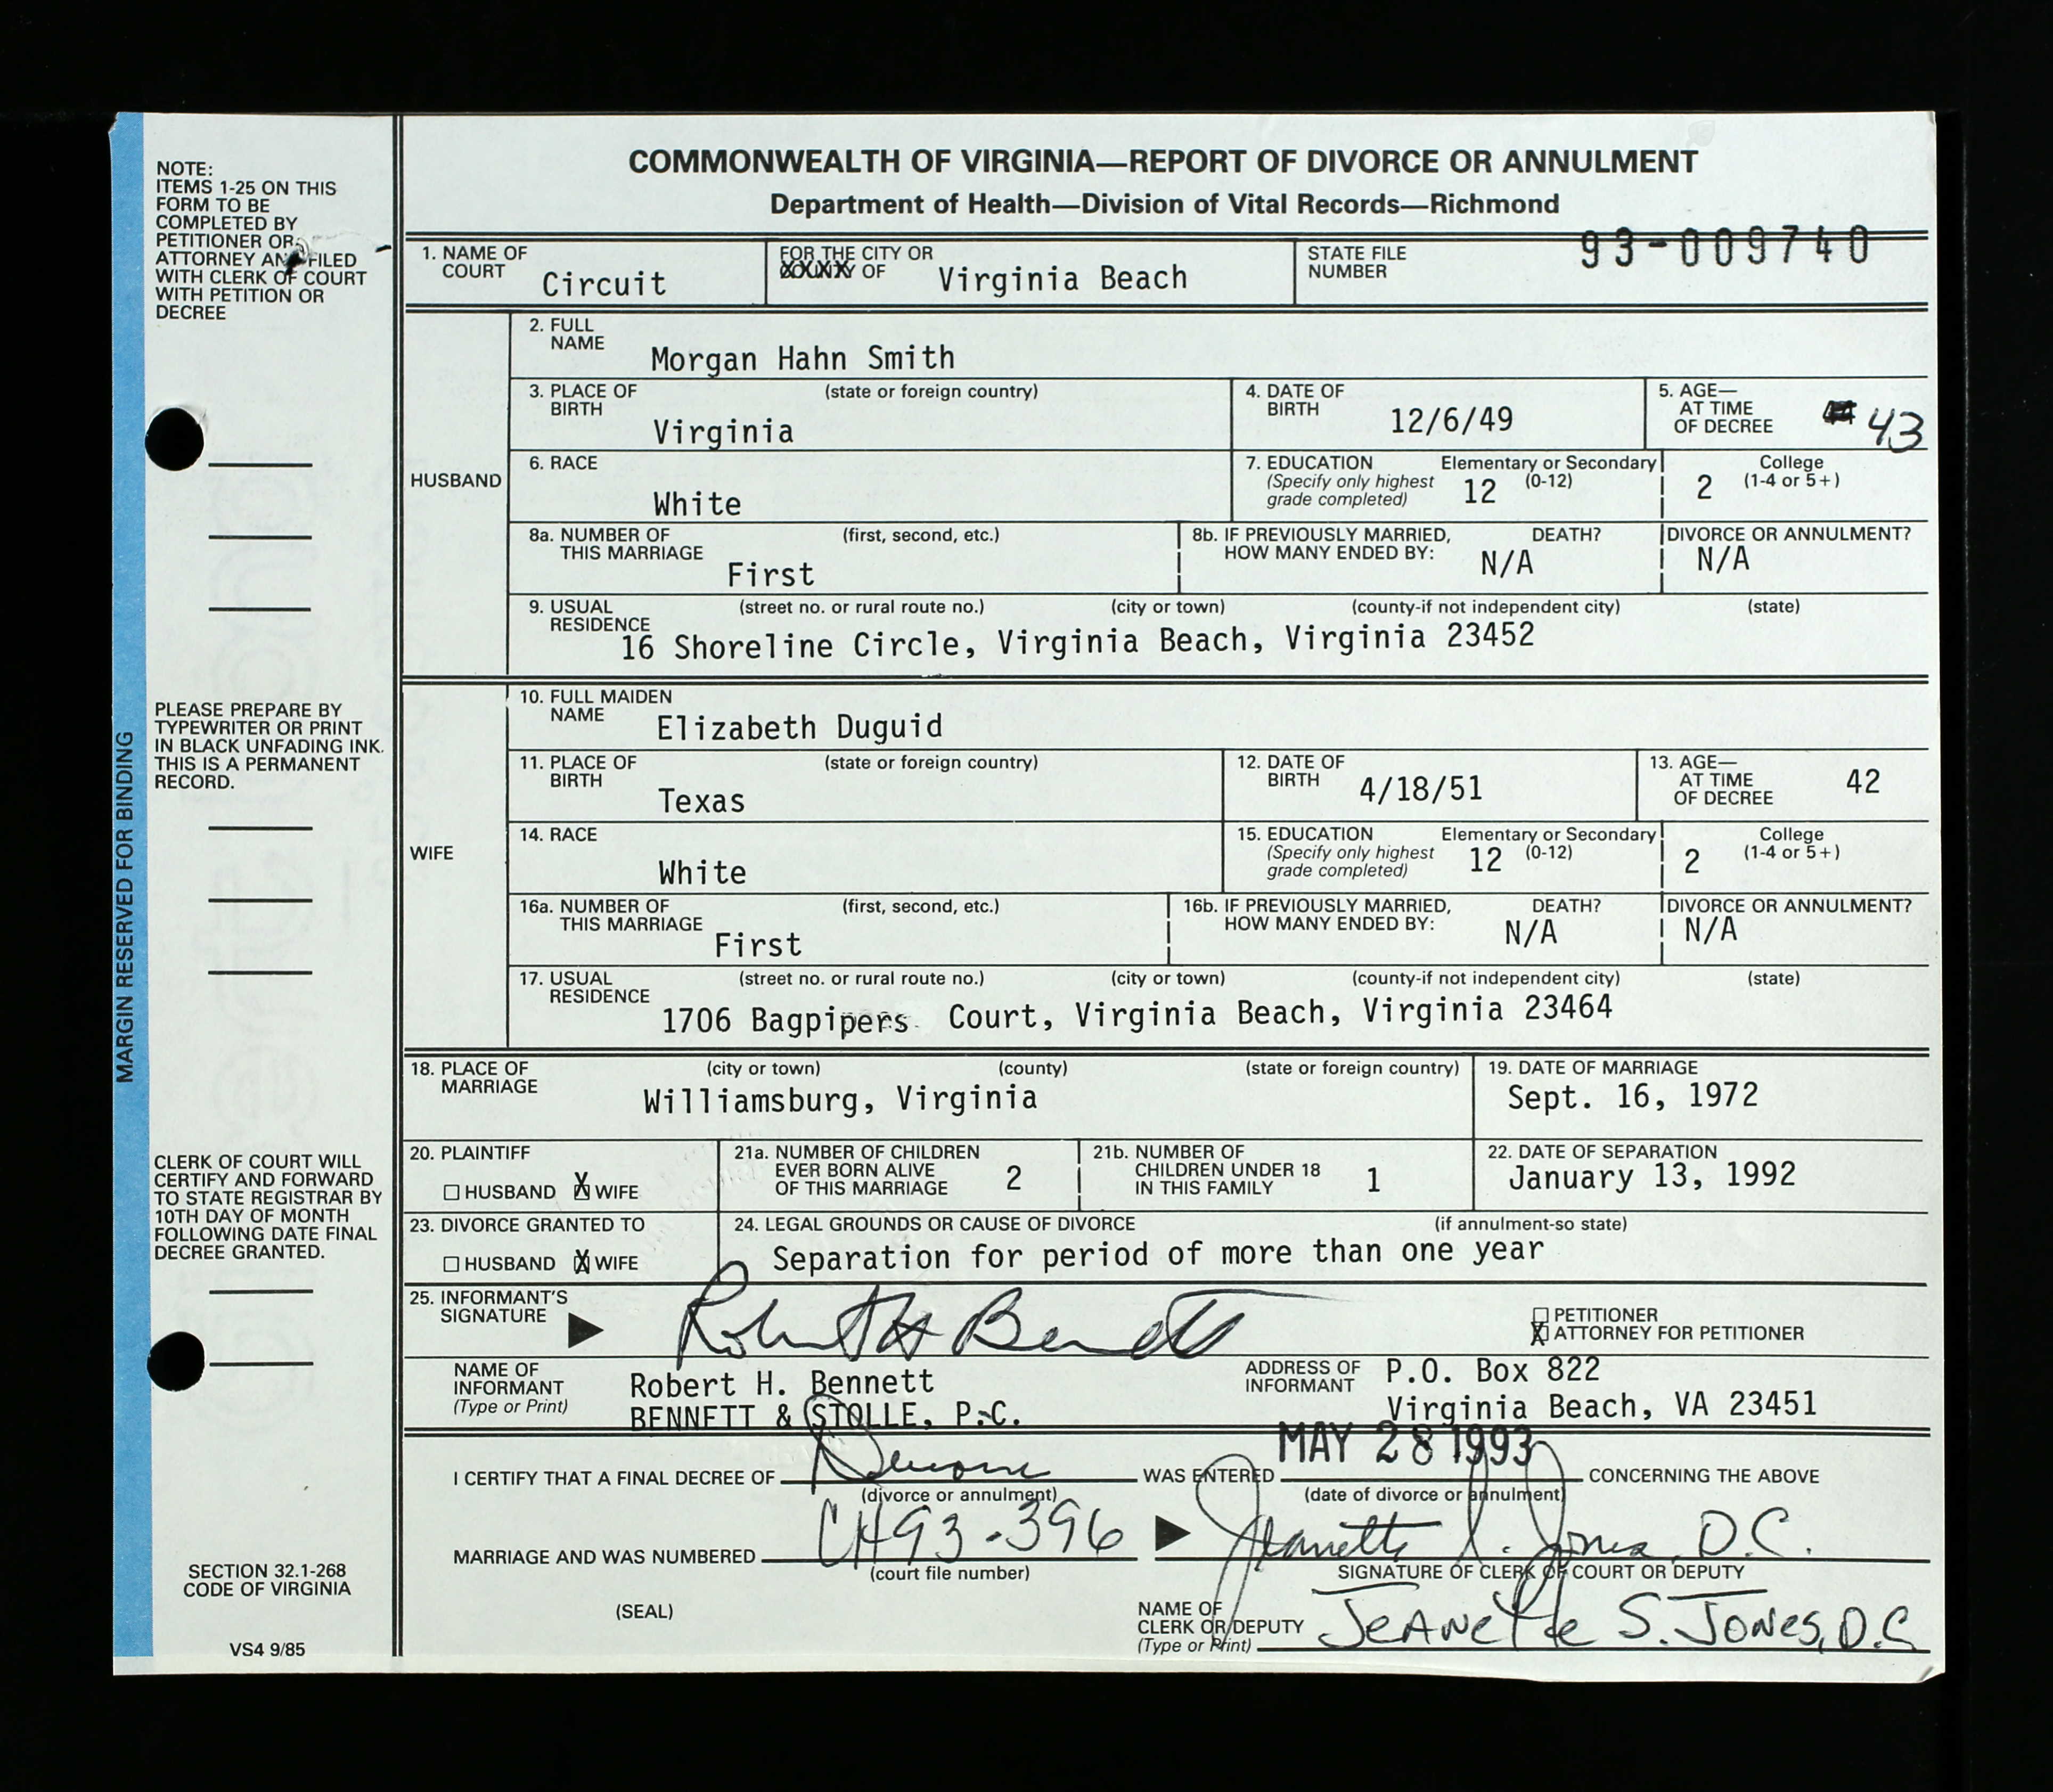 COMMONWEALTH OF VIRGINIA—REPORT OF DIVORCE OR ANNULMENT
Department of Health—Division of Vital Records—Richmond
NOTE:
ITEMS 1-25 ON THIS
FORM TO BE
COMPLETED BY
PETITIONER OR
ATTORNEY AND FILED
WITH CLERK OF COURT
WITH PETITION OR
DECREE
PLEASE PREPARE BY
TYPEWRITER OR PRINT
IN BLACK UNFADING INK.
THIS IS A PERMANENT
RECORD.
CLERK OF COURT WILL
CERTIFY AND FORWARD
TO STATE REGISTRAR BY
10TH DAY OF MONTH
FOLLOWING DATE FINAL
DECREE GRANTED.
SECTION 32.1-268
CODE OF VIRGINIA
VS4 9/85
MARGIN RESERVED FOR BINDING
1. NAME OF COURT Circuit FOR THE CITY OR COUNTY OF Virginia Beach STATE FILE NUMBER 93-009740
HUSBAND
2. FULL NAME Morgan Hahn Smith
3. PLACE OF BIRTH (state or foreign country) Virginia 4. DATE OF BIRTH 12/6/49 5. AGE— AT TIME OF DECREE 43
6. RACE White 7. EDUCATION (Specify only highest grade completed) Elementary or Secondary (0-12) 12 College (1-4 or 5+) 2
8a. NUMBER OF THIS MARRIAGE (first, second, etc.) First 8b. IF PREVIOUSLY MARRIED, HOW MANY ENDED BY: DEATH? N/A DIVORCE OR ANNULMENT? N/A
9. USUAL RESIDENCE (street no. or rural route no.) (city or town) (county-if not independent city) (state)
16 Shoreline Circle, Virginia Beach, Virginia 23452
WIFE
10. FULL MAIDEN NAME Elizabeth Duguid
11. PLACE OF BIRTH (state or foreign country) Texas 12. DATE OF BIRTH 4/18/51 13. AGE— AT TIME OF DECREE 42
14. RACE White 15. EDUCATION (Specify only highest grade completed) Elementary or Secondary (0-12) 12 College (1-4 or 5+) 2
16a. NUMBER OF THIS MARRIAGE (first, second, etc.) First 16b. IF PREVIOUSLY MARRIED, HOW MANY ENDED BY: DEATH? N/A DIVORCE OR ANNULMENT? N/A
17. USUAL RESIDENCE (street no. or rural route no.) (city or town) (county-if not independent city) (state)
1706 Bagpipers Court, Virginia Beach, Virginia 23464
18. PLACE OF MARRIAGE (city or town) (county) (state or foreign country) Williamsburg, Virginia 19. DATE OF MARRIAGE Sept. 16, 1972
20. PLAINTIFF HUSBAND X WIFE 21a. NUMBER OF CHILDREN EVER BORN ALIVE OF THIS MARRIAGE 2 21b. NUMBER OF CHILDREN UNDER 18 IN THIS FAMILY 1 22. DATE OF SEPARATION January 13, 1992
23. DIVORCE GRANTED TO HUSBAND X WIFE 24. LEGAL GROUNDS OR CAUSE OF DIVORCE (if annulment-so state) Separation for period of more than one year
25. INFORMANT'S SIGNATURE Robert H Bennett PETITIONER X ATTORNEY FOR PETITIONER
NAME OF INFORMANT (Type or Print) Robert H. Bennett ADDRESS OF INFORMANT P.O. Box 822
BENNETT & STOLLE, P.C. Virginia Beach, VA 23451
I CERTIFY THAT A FINAL DECREE OF Divorce WAS ENTERED MAY 28 1993 CONCERNING THE ABOVE
(divorce or annulment) (date of divorce or annulment)
MARRIAGE AND WAS NUMBERED CH93-396 Jeanette S. Jones, D.C.
(court file number) SIGNATURE OF CLERK OF COURT OR DEPUTY
(SEAL) NAME OF CLERK OR DEPUTY (Type or Print) JEANETTE S. JONES, D.C.